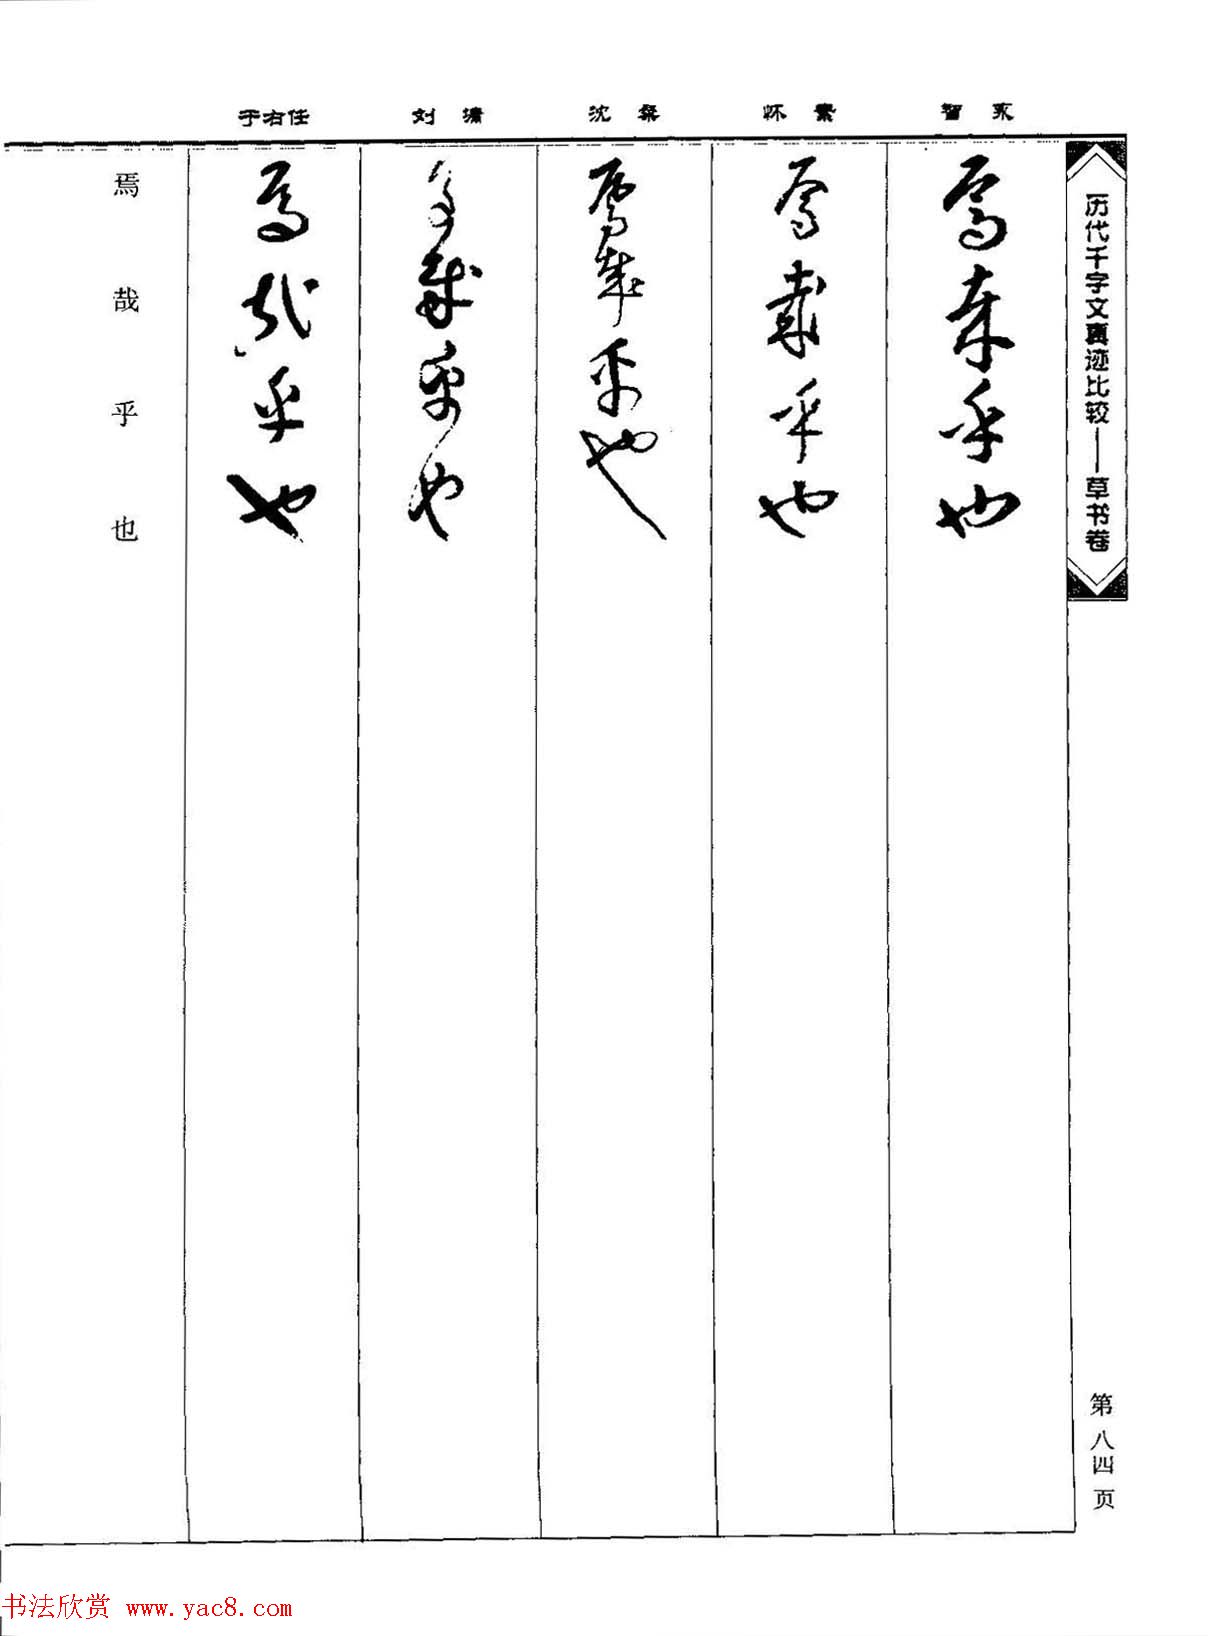 历代千字文真迹比较——草书卷
智永
焉哉乎也
怀素
焉哉乎也
沈粲
焉哉乎也
刘墉
焉哉乎也
于右任
焉哉乎也
焉哉乎也
第八四页
书法欣赏 www.yac8.com